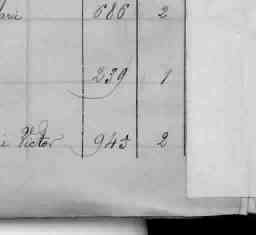 686 2
239 1
Victor 945 2